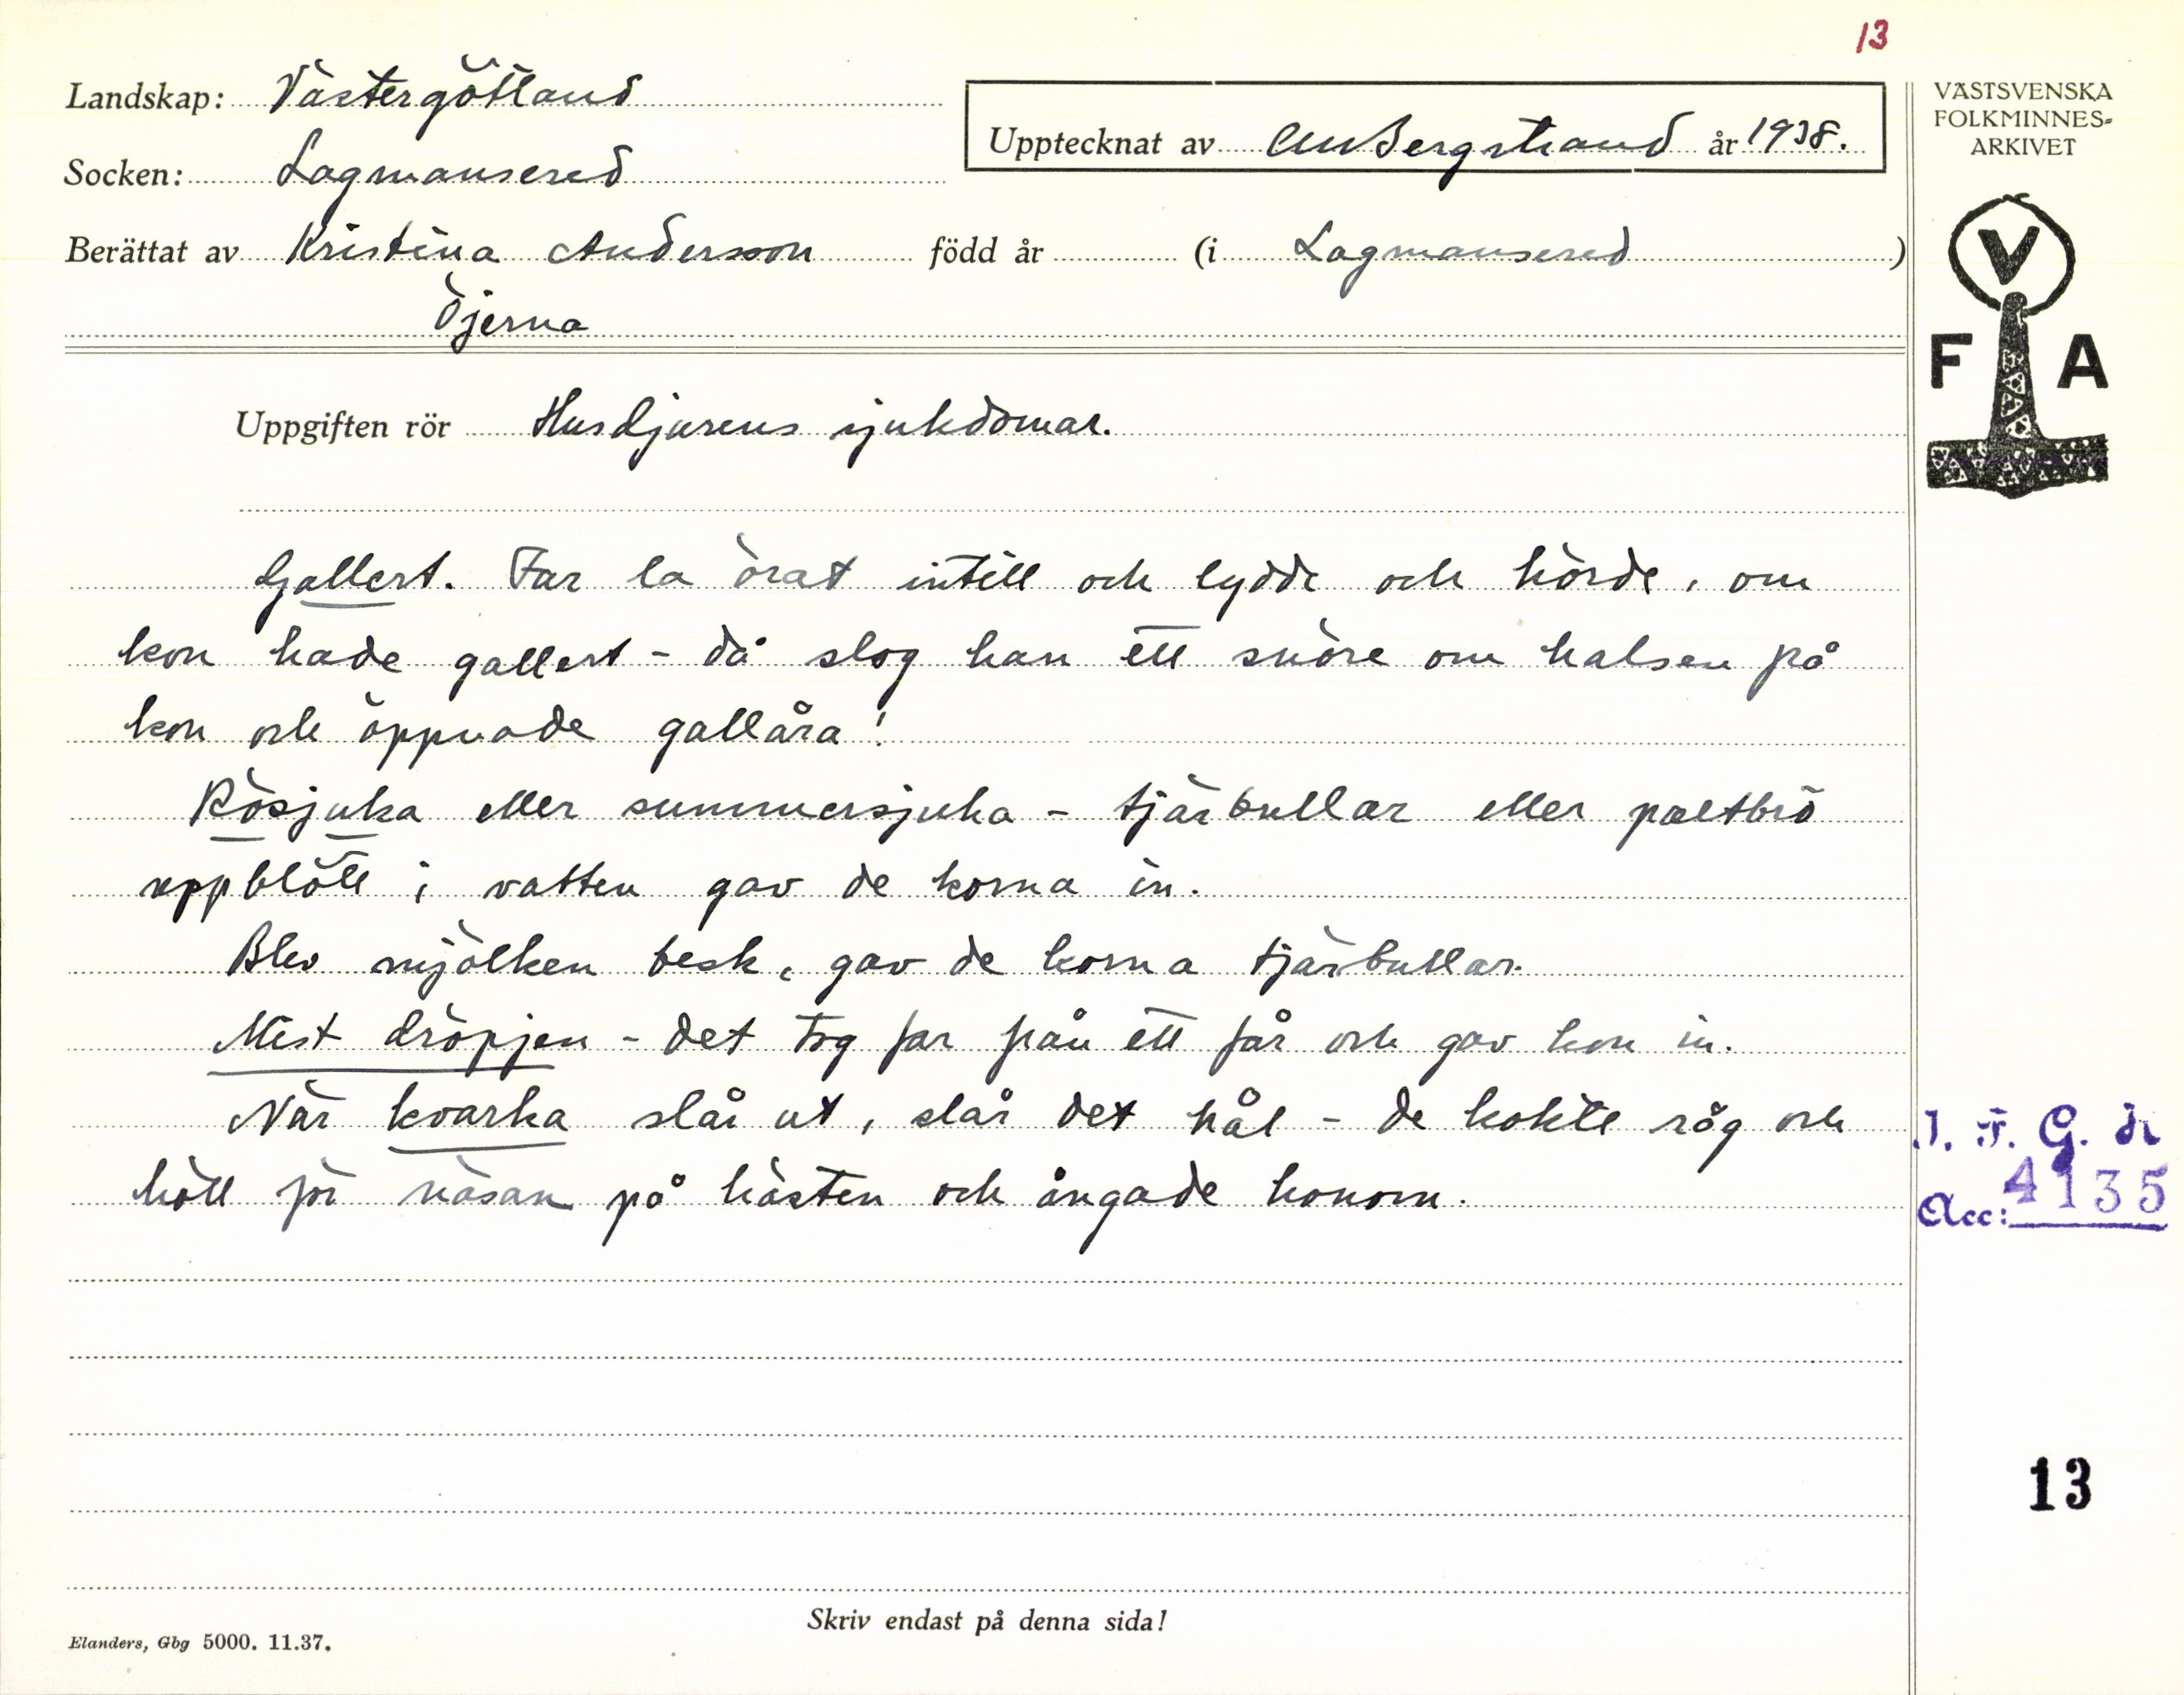 13
Landskap: Västergötland
Upptecknat av CM Bergstrand år 1938.
Socken: Lagmansered
Berättat av Kristina Andersson född år (i Lagmansered)
Öjerna
Uppgiften rör Husdjurens sjukdomar.
Gallert. Far la örat intill och lydde och hörde, om
kon hade gallert - då slog han ett snöre om halsen på
kon och öppnade gallåra!
Rösjuka eller summersjuka - tjärbullar eller paltbrö
uppblött i vatten gav de korna in.
Blev mjölken besk, gav de korna tjärbullar.
Mist dröpjen - det tog far från ett får och gav kon in.
När kvarka slår ut, slår det hål - de kokte råg och
höll för näsan på hästen och ångade honom.
Skriv endast på denna sida!
Elanders, Gbg 5000. 11.37.
VÄSTSVENSKA
FOLKMINNES-
ARKIVET
V
F A
I. F. G. hr
Acc: 4135
13